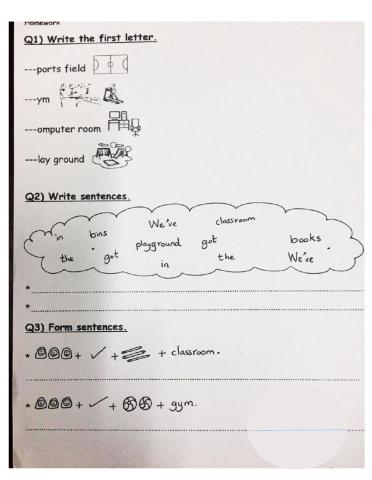 Homework
Q1) Write the first letter.
---ports field
---ym
---omputer room
---lay ground
Q2) Write sentences.
in bins We've classroom
the . got playground got books .
in the We've
*
*
Q3) Form sentences.
* + ✓ + + classroom.
* + ✓ + + gym.